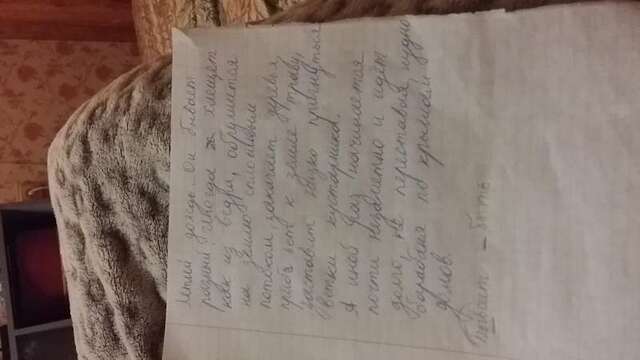 Летний дождь. Он бывает
разный иногда за хлещет
как из ведра, обрушится
на землю сплошным
потоком, закачает деревья,
прибьёт к земле траву,
заставит низко пригнуться
ветки кустарника.
А иной раз начинается
почти незаметно и идёт
долго, не переставая, нудно
барабаня по крышам
домов.
Бывает - быть